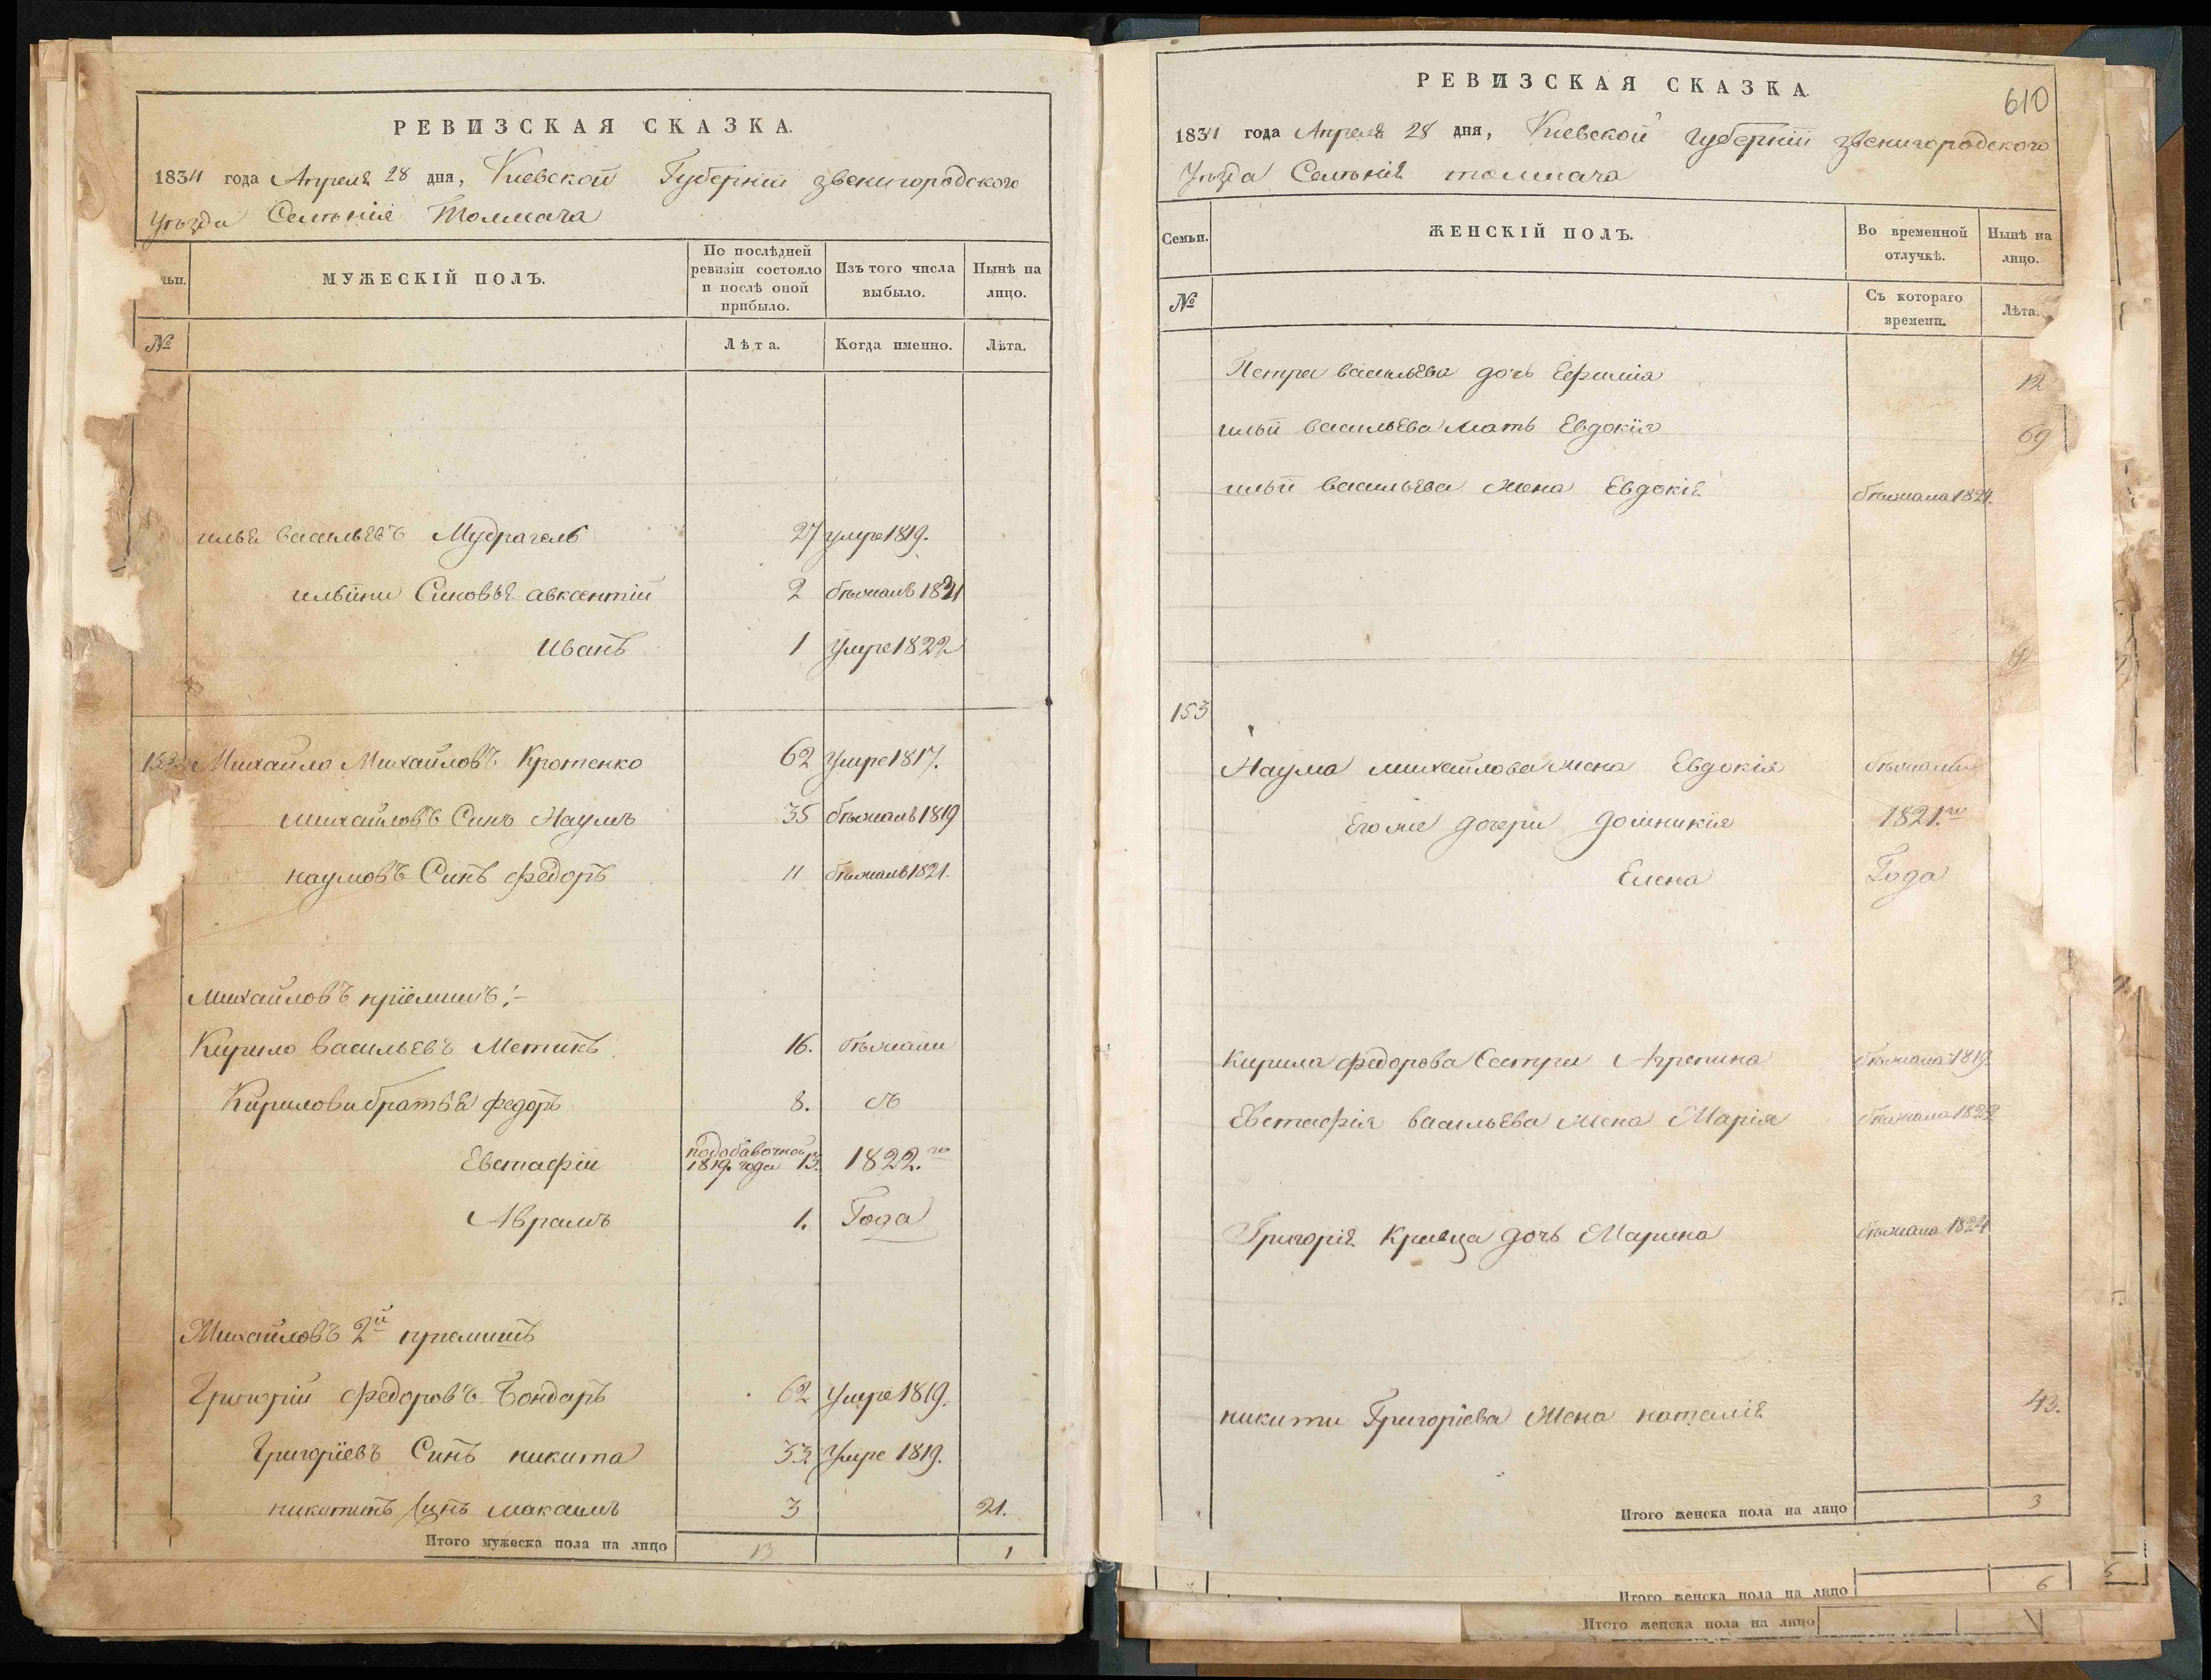 РЕВИЗСКАЯ СКАЗКА.
1834 года Апреля 28 дня, Киевской Губернiи звенигородского
Уѣзда Селѣнiя Толмача
МУЖЕСКІЙ ПОЛЪ.
По послѣдней ревизіи состояло и послѣ оной прибыло.
Изъ того числа выбыло.
Нынѣ на лицо.
№
Лѣта.
Когда именно.
Лѣта.
илья васильевъ Мудрагель 27 умре 1819.
ильини Синовья авксентiй 2 бѣжалъ 1821
Иванъ 1 Умре 1822
Михайло Михайловъ Кротенко 62 Умре 1817.
михайловъ Синъ Наумъ 35 бѣжалъ 1819
наумовъ Синъ федоръ 11 бѣжалъ 1821.
Михайловъ прiемишъ:-
Кирило васильевъ Метикъ 16. бѣжали
Кирилови братья федоръ 8. съ
Евстафiй подобавочной 1819. года 13. 1822.го
Аврамъ 1. Года
Михайловъ 2й приемишъ
Григорiй федоровъ Бондаръ 62 Умре 1819.
Григорiевъ Синъ никита 33. Умре 1819.
никитинъ Синъ максимъ 3 21.
Итого мужеска пола на лицо 13 1
РЕВИЗСКАЯ СКАЗКА.
610
1834 года Апреля 28 дня, Киевской Губернiи звенигородского
Уѣзда Селѣнiя толмача
Семьи.
ЖЕНСКІЙ ПОЛЪ.
Во временной отлучкѣ.
Нынѣ на лицо.
№
Съ котораго времени.
Лѣта.
Петра васильева дочь Ефимiя 12
ильи васильева мать Евдокiя 69
ильи васильева жена Евдокiя бѣжала 1824.
153
Наума михайлова жена Евдокiя бѣжали
Его же дочери домникiя 1821.го
Елена Года
Кирила федорова Сестра Агрепина бѣжала 1819.
Евстафiя васильева жена Марiя бѣжала 1822
Григорiя Кривца дочь Марина бѣжала 1824
никити Григорiева Жена наталiя 43.
Итого женска пола на лицо 3
Итого женска пола на лицо 6
Итого женска пола на лицо